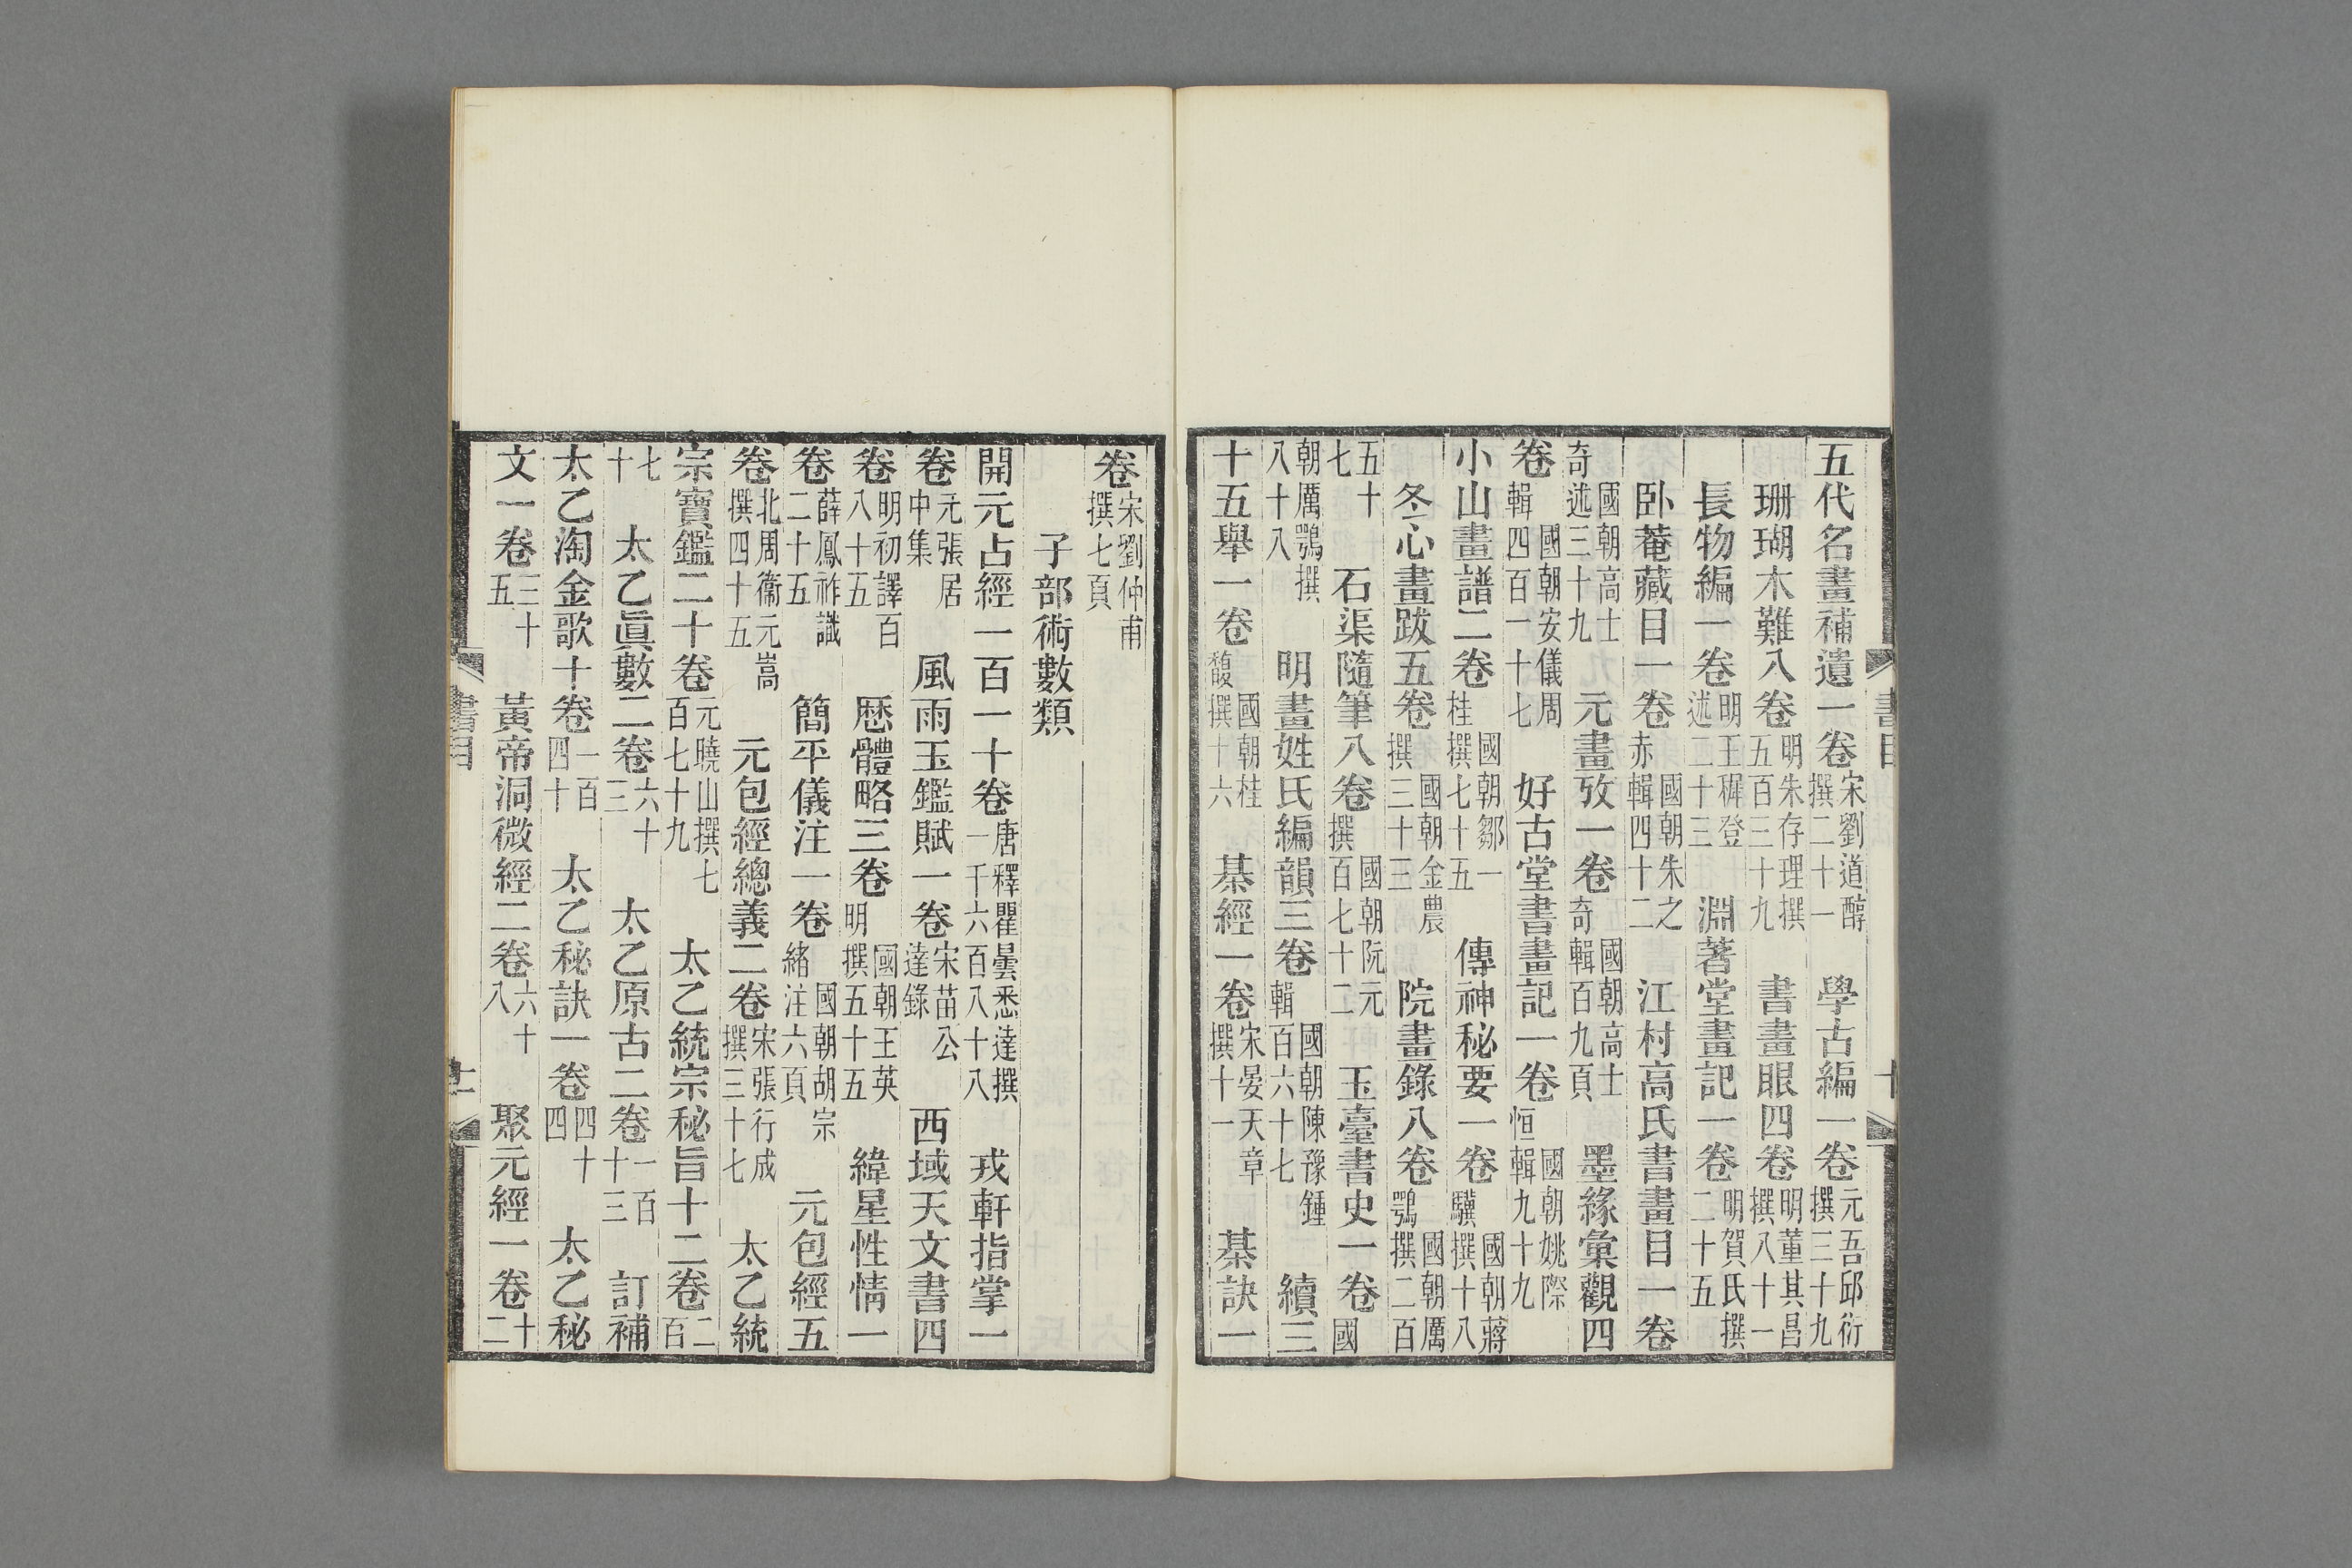 五代名畫補遺一卷宋劉道醇撰二十一 學古編一卷元吾邱衍撰三十九
珊瑚木難八卷明朱存理撰五百三十九 書畫眼四卷明董其昌撰八十一
長物編一卷明王穉登述二十三 淵著堂畫記一卷明賀氏撰二十五
臥菴藏目一卷國朝朱之赤輯四十二 江村高氏書畫目一卷
國朝高士奇述三十九 元畫攷一卷國朝高士奇輯百九頁 墨緣彙觀四
卷國朝安儀周輯四百一十七 好古堂書畫記一卷國朝姚際恒輯九十九
小山畫譜二卷國朝鄒一桂撰七十五 傳神秘要一卷國朝蔣驥撰十八
冬心畫跋五卷國朝金農撰三十三 院畫錄八卷國朝厲鶚撰二百
五十七 石渠隨筆八卷國朝阮元撰百七十二 玉臺書史一卷國
朝厲鶚撰八十八 明畫姓氏編韻三卷國朝陳豫鍾輯百六十七 續三
十五舉一卷國朝桂馥撰十六 棊經一卷宋晏天章撰十一 棊訣一
卷宋劉仲甫撰七頁
子部術數類
開元占經一百一十卷唐釋瞿曇悉達撰一千六百八十八 戎軒指掌一
卷元張居中集 風雨玉鑑賦一卷宋苗公達錄 西域天文書四
卷明初譯百八十五 歷體略三卷國朝王英明撰五十五 緯星性情一
卷薛鳳祚識二十五 簡平儀注一卷國朝胡宗緒注六頁 元包經五
卷北周衞元嵩撰四十五 元包經總義二卷宋張行成撰三十七 太乙統
宗寶鑑二十卷元曉山撰七百七十九 太乙統宗秘旨十二卷二百
七十 太乙眞數二卷六十三 太乙原古二卷一百十三 訂補
太乙淘金歌十卷一百四十 太乙秘訣一卷四十四 太乙秘
文一卷三十五 黃帝洞微經二卷六十八 聚元經一卷十二
書目